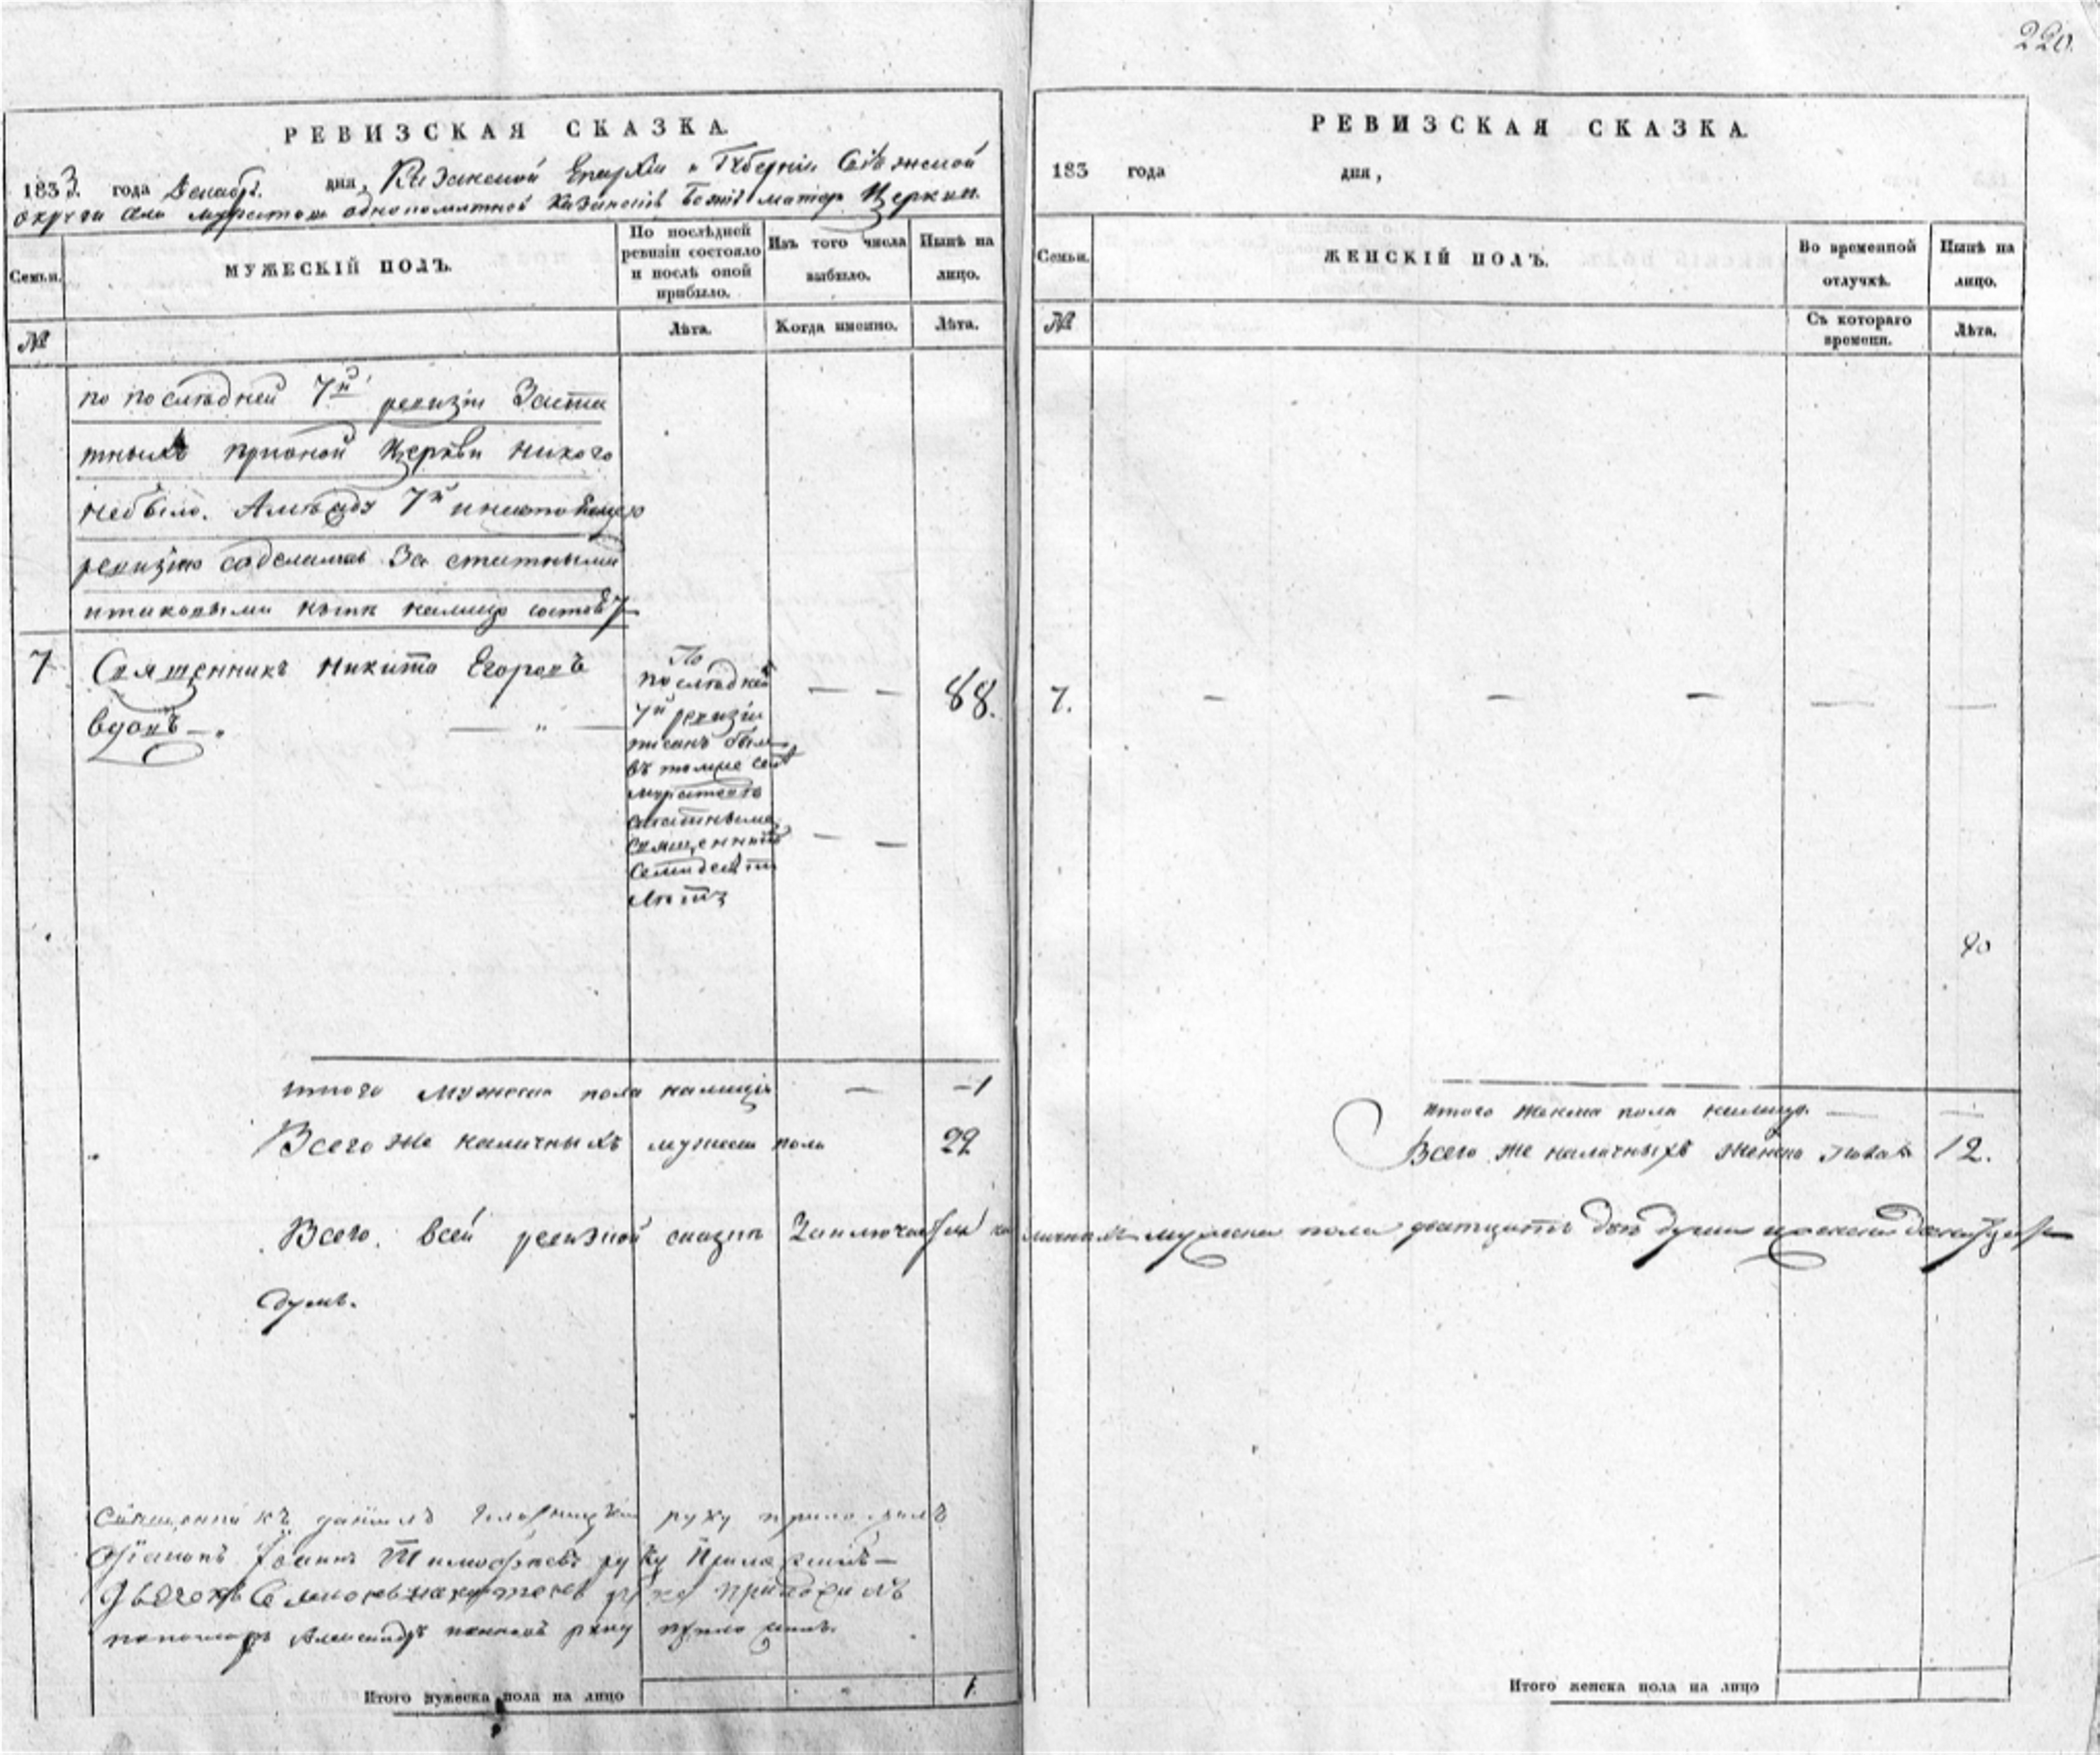 220.
РЕВИЗСКАЯ СКАЗКА.
1833. года Декабр. дня, Казанской Епархіи и Губерніи Свіяжской
округи села однокомплектной Казанскія Божія матери Церкви.
Семьи.
МУЖЕСКІЙ ПОЛЪ.
По послѣдней ревизіи состояло и послѣ оной прибыло.
Изъ того числа выбыло.
Нынѣ на лицо.
№
Лѣта.
Когда именно.
Лѣта.
по последней 7й ревизіи Зашта
тныхъ прионой Церкви никого
небыло. 7й
ревизію За статными
7
Священникъ Никита Егоровъ
вдовъ
По
последней
7й ревизіи
писанъ былъ
въ томже селѣ
статнымъ
священникомъ
семидесяти
лѣтъ
— —
88.
— —
итого мужеска пола налицо — 1
Всего же наличныхъ мужеска пола 22
Всего всей ревизской сказки Заключается наличныхъ мужеска пола двадцать двѣ души женска двенадцать
душъ.
Священникъ Даніилъ руку приложилъ
Діаконъ Іоаннъ Тимофѣевъ руку Приложилъ —
Дьячокъ руку приложилъ
пономарь Александръ руку приложилъ.
Итого мужеска пола на лицо 1
РЕВИЗСКАЯ СКАЗКА.
183 года дня,
Семьи.
ЖЕНСКІЙ ПОЛЪ.
Во временной отлучкѣ.
Нынѣ на лицо.
№
Съ котораго времени.
Лѣта.
7. — — — — —
итого женска пола налицо. — —
Всего же наличныхъ женска пола 12.
Итого женска пола на лицо